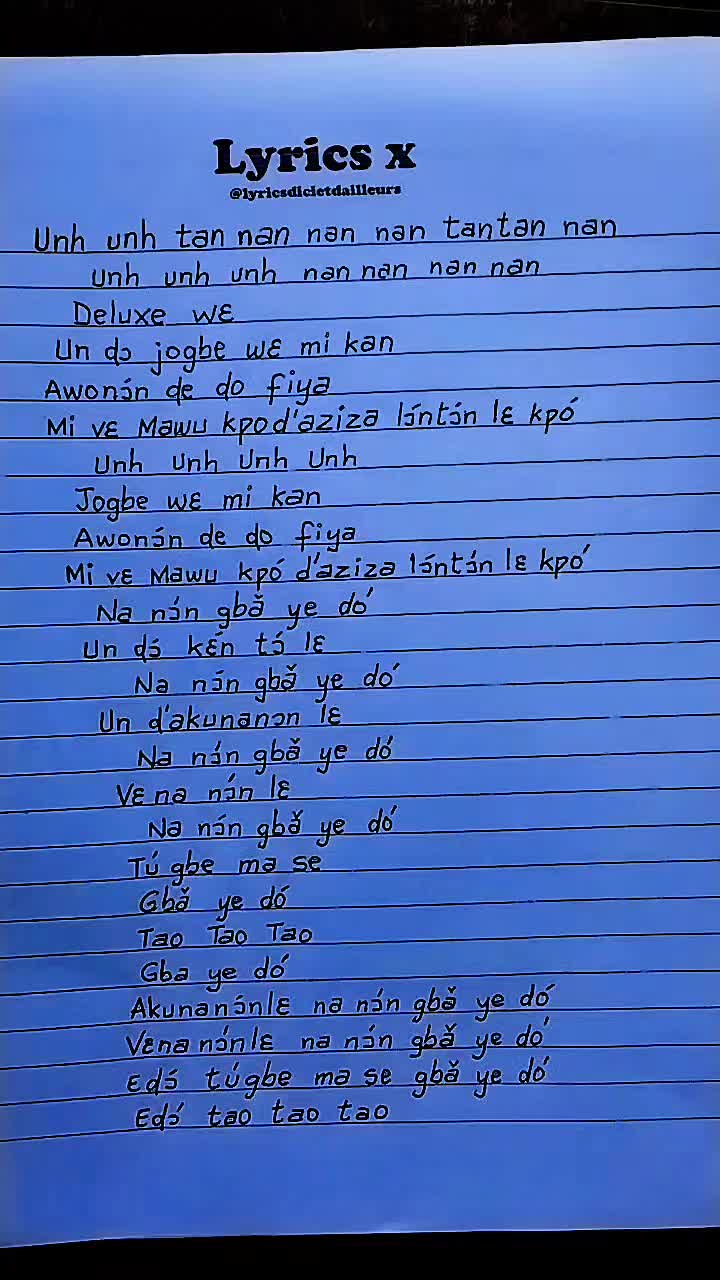 Lyrics x
@lyricsdicietdailleurs
Unh unh tan nan nan nan tantan nan
Unh unh unh nan nan nan nan
Deluxe wɛ
Un dɔ jogbe wɛ mi kan
Awonɔ́n de do fiya
Mi vɛ Mawu kpod'aziza lɔ́ntɔ́n lɛ kpó
Unh Unh Unh Unh
Jogbe wɛ mi kan
Awonɔ́n de do fiya
Mi vɛ Mawu kpó d'aziza lɔ́ntɔ́n lɛ kpó
Na nɔ́n gbǎ ye dó
Un dɔ́ kɛ́n tɔ́ lɛ
Na nɔ́n gbǎ ye dó
Un d'akunanɔn lɛ
Na nɔ́n gbǎ ye dó
Vɛ na nɔ́n lɛ
Na nɔ́n gbǎ ye dó
Tú gbe ma se
Gbǎ ye dó
Tao Tao Tao
Gba ye dó
Akunanɔ́nlɛ na nɔ́n gbǎ ye dó
Vɛna nɔ́nlɛ na nɔ́n gbǎ ye dó
Ɛdɔ́ túgbe ma se gbǎ ye dó
Ɛdɔ́ tao tao tao